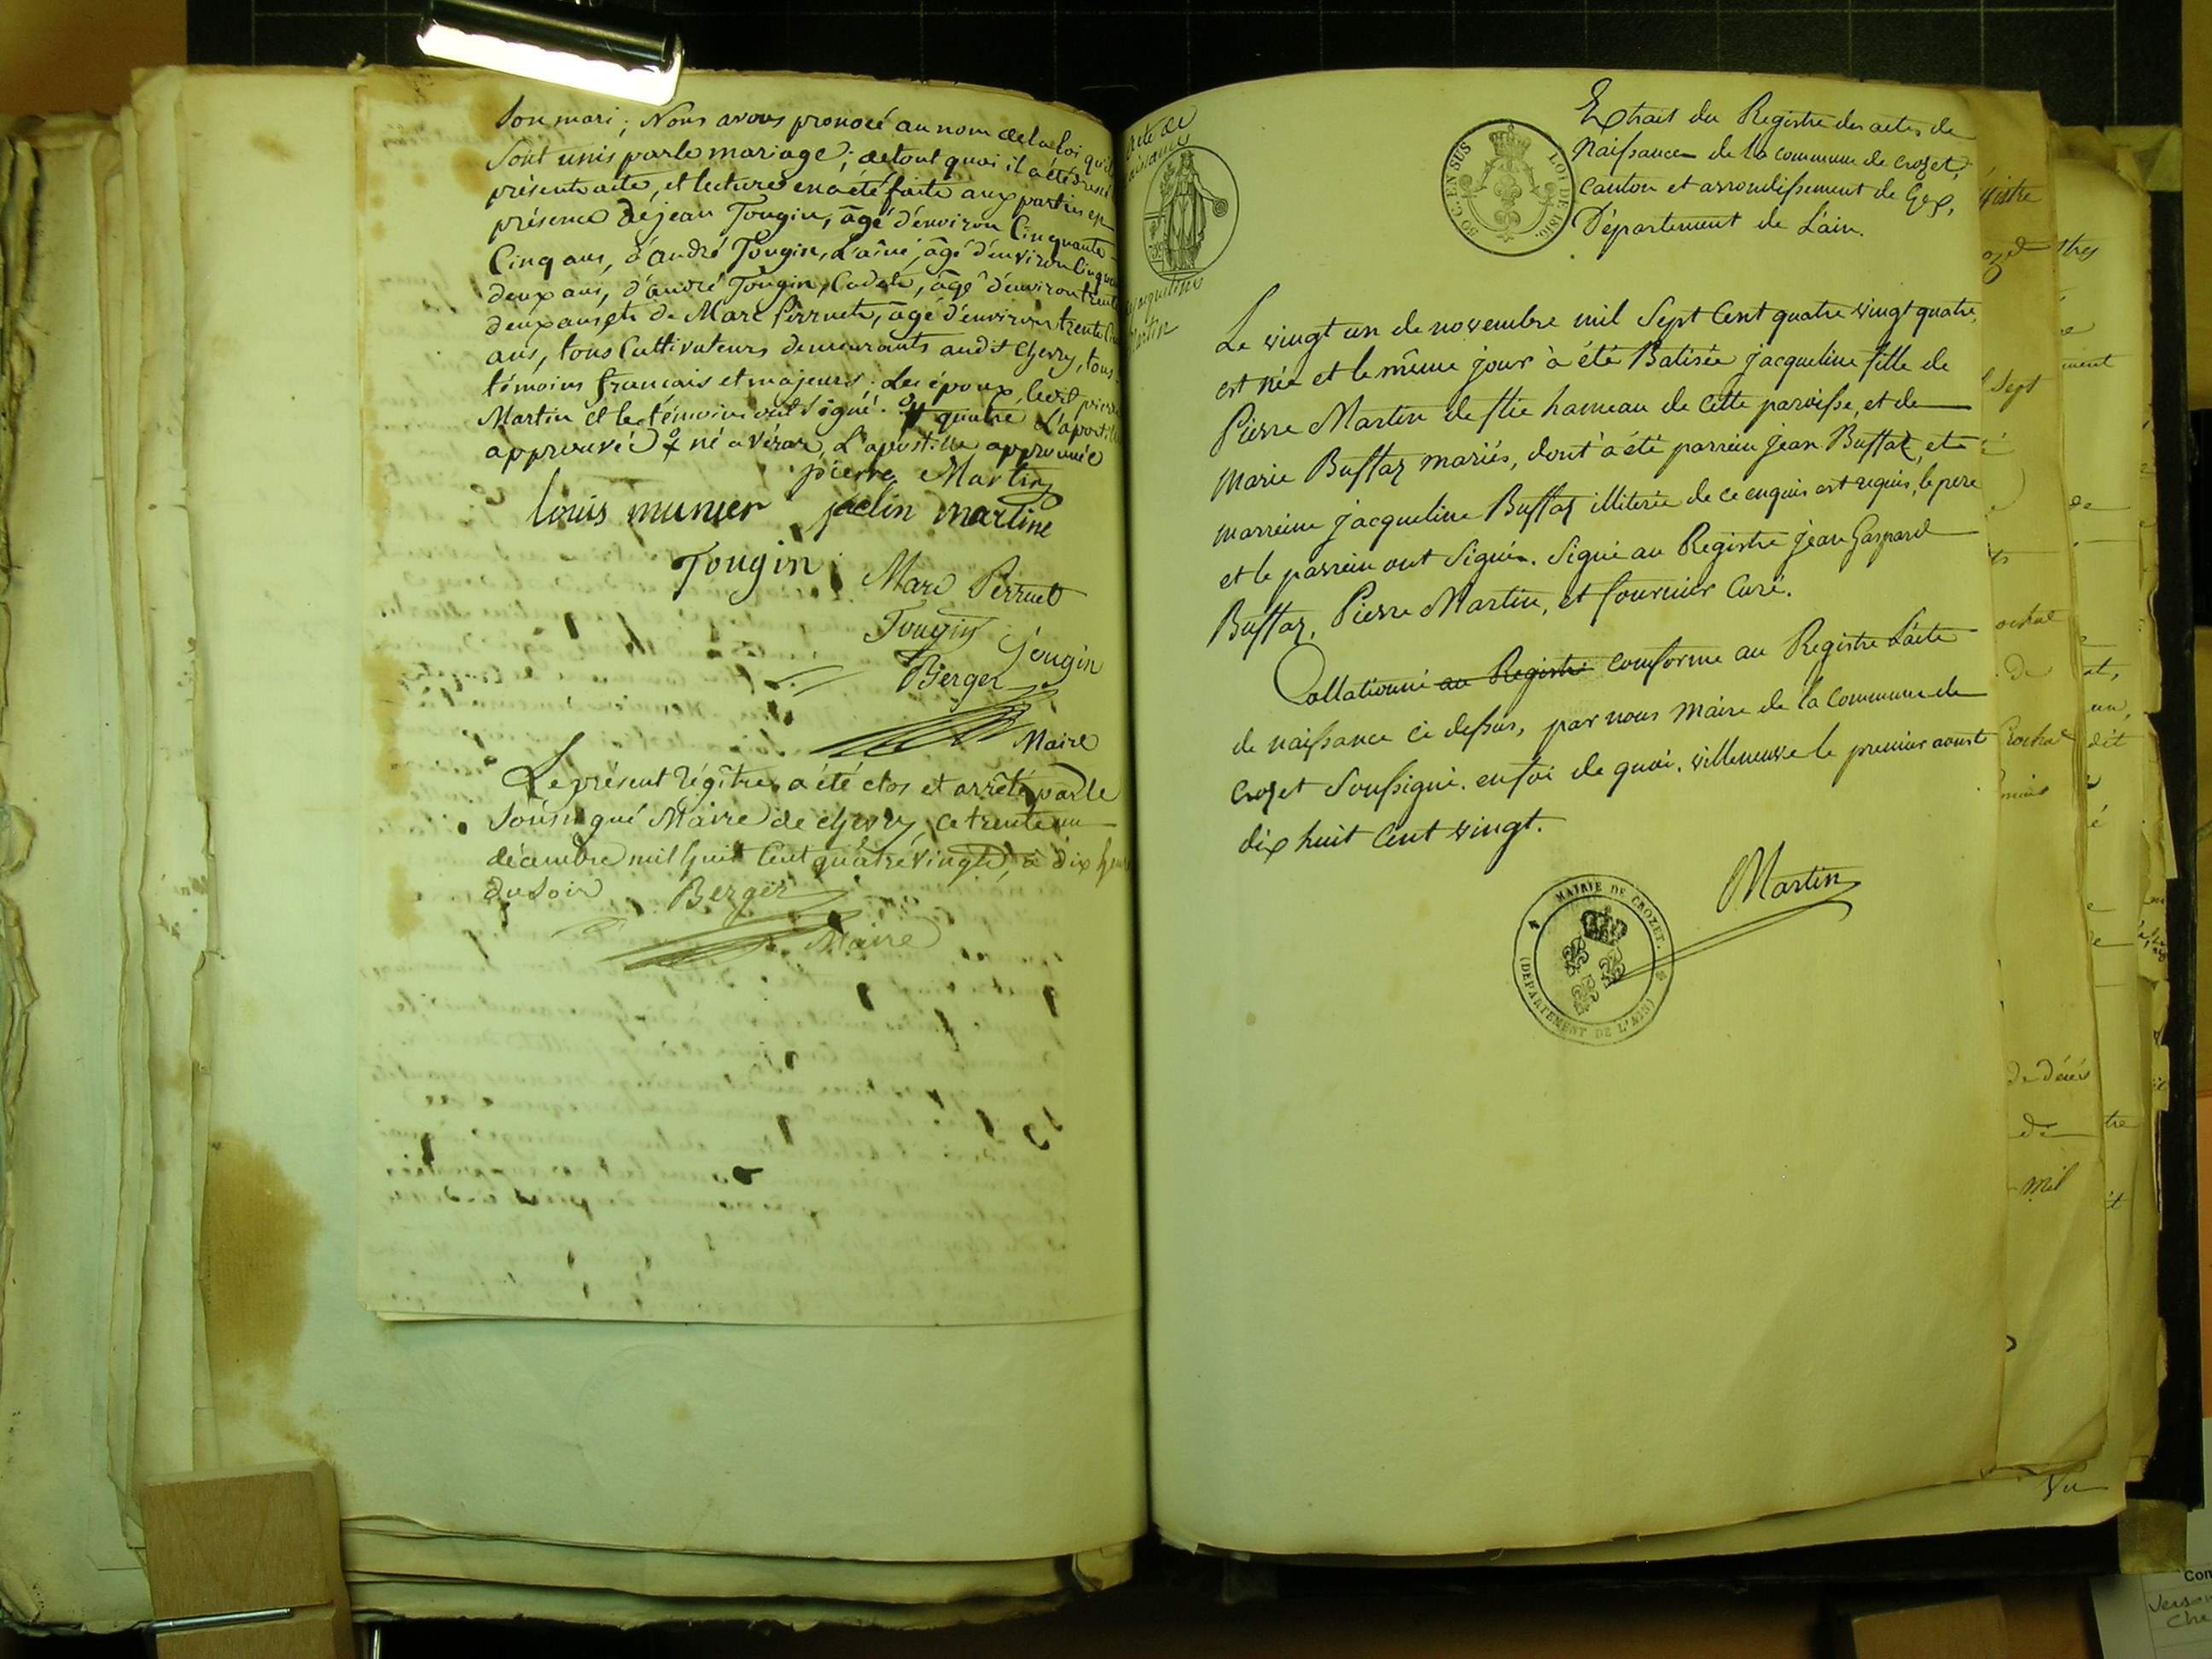 son mari; Nous avons prononcé au nom de la loi qu'ils
Sont unis par le mariage; de tout quoi il a été dressé
présente acte, et lecture en a été faite aux parties en
présence de jean Tougin, âgé d'environ Cinquante
Cinq ans, d'andré Tougin, L'aîné, âgé d'environ Cinquante
deux ans, d'andré Tougin, Cadet, âgé d'environ trente
deux ans et de Marc Perruet, âgé d'environ trente
ans, tous Cultivateurs demeurants audit chevry, tous
témoins francais et majeurs. Les époux, ledit pierre
Martin et les témoins ont signé. quatre L'apostille
approuvé né a Vésar, L'apostille approuvée
pierre Martin
louis munier jaclin martine
Tougin Marc Perruet
Tougin Gougin
Berger
Maire
Le présent régître a été clos et arrêté par le
Soussigné Maire de chevry, ce trente un
décembre mil huit Cent quatre vingt, à dix heures
du Soir Berger
Maire
acte de
naissance
jacqueline
Martin
50 C. EN SUS
LOI DE 1816.
Extrait du Registre des actes de
Naissance de la commune de crozet,
canton et arrondissement de Gex,
Département de L'ain.
Le vingt un de novembre mil Sept Cent quatre vingt quatre,
est née et le même jour à été Batisée jacqueline fille de
Pierre Martin de flie hameau de cette paroisse, et de
Marie Buffaz mariés, dont à été parrein jean Buffaz, et
marreine jacqueline Buffaz illiterée de ce enquis est requis, le pere
et le parrein ont Signé. Signé au Registre jean Gaspard
Buffaz, Pierre Martin, et fournier Curé.
Collationné au Registre conforme au Registre L'acte
de naissance ci dessus, par nous Maire de la Commune de
Crozet Soussigné. en foi de quoi. villeneuve le premier aoust
dix huit Cent vingt.
Martin
MAIRIE DE CROZET.
(DÉPARTEMENT DE L'AIN)
gistre
Sept
de
mil
Vu